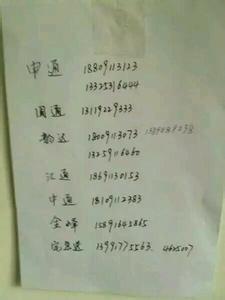 申通 18809113123
13325316444
圆通 13119229333
韵达 18009113073
13259116460
汇通 18691130153
中通 18109112383
全峰 15891645865
宅急送 13991775563 4625007